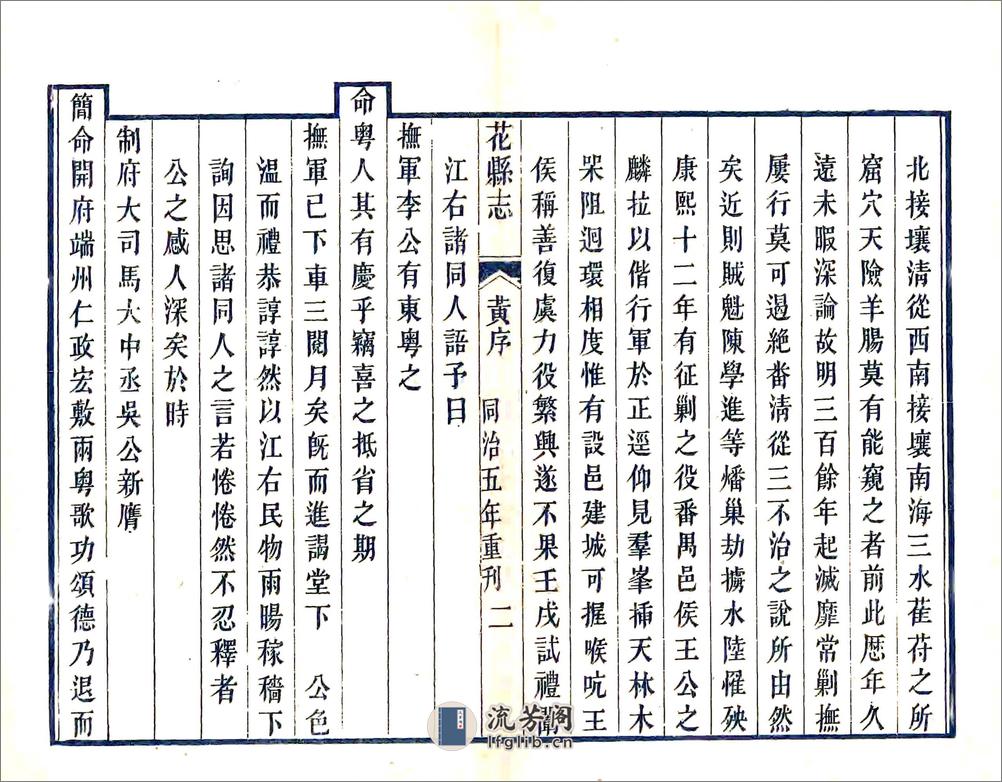 北接壤淸從西南接壤南海三水萑苻之所
窟穴天險羊腸莫有能窺之者前此歷年久
遠未暇深論故明三百餘年起滅靡常剿撫
屢行莫可遏絕番淸從三不治之說所由然
矣近則賊魁陳學進等燔巢劫擄水陸罹殃
康熙十二年有征剿之役番禺邑侯王公之
麟拉以偕行軍於正逕仰見羣峯揷天林木
罙阻迴環相度惟有設邑建城可握喉吭王
侯稱善復虞力役繁興遂不果壬戌試禮闈
花縣志
黃序
同治五年重刊
二
江右諸同人語予曰
撫軍李公有東粵之
命粵人其有慶乎竊喜之抵省之期
撫軍已下車三閱月矣旣而進謁堂下 公色
溫而禮恭諄諄然以江右民物雨暘稼穡下
詢因思諸同人之言若惓惓然不忍釋者
公之感人深矣於時
制府大司馬大中丞吳公新膺
簡命開府端州仁政宏敷兩粵歌功頌德乃退而
流芳阁
lfglib.cn